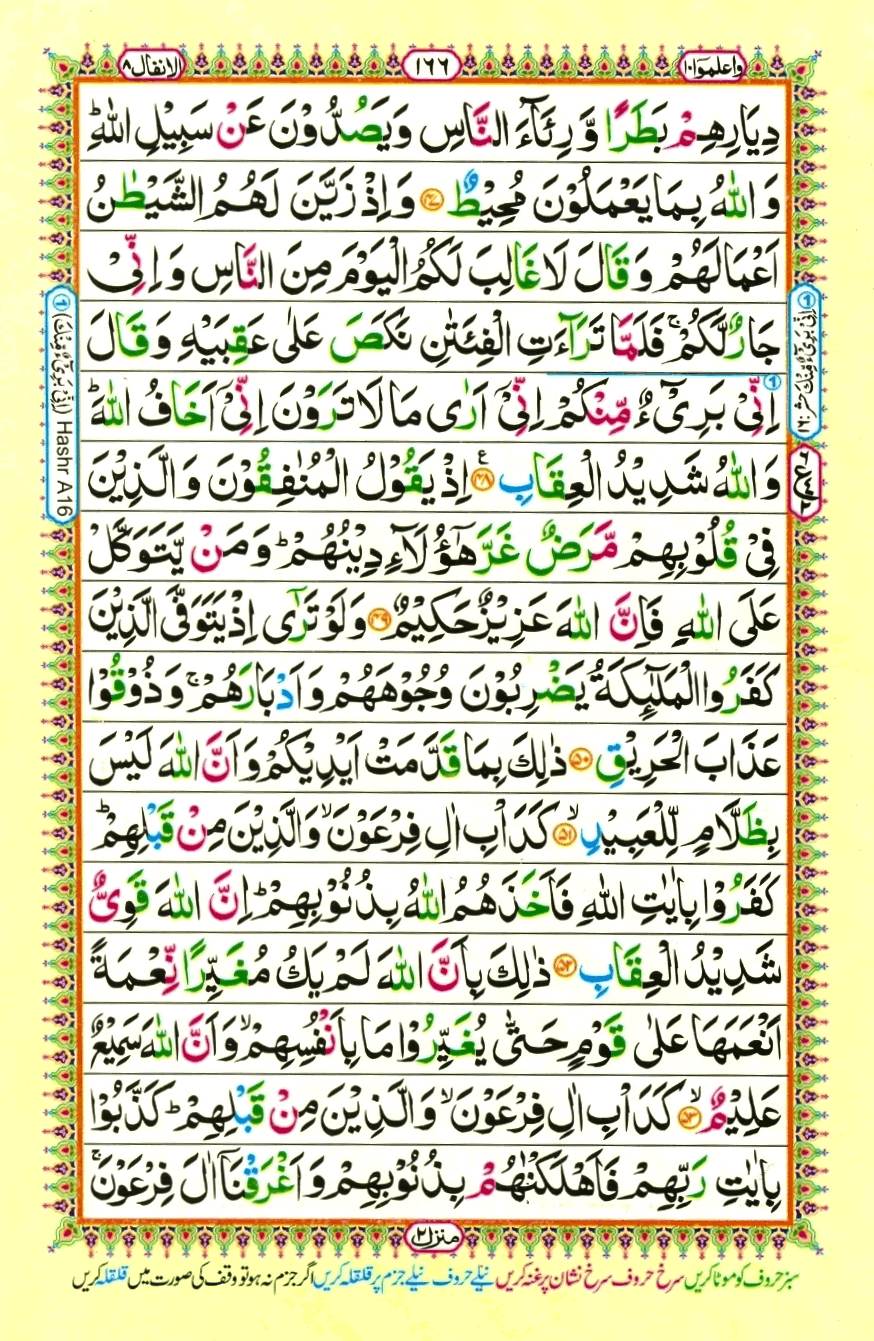 واعلموا ١٠
١٦٦
الانفال ٨
دِيَارِهِمْ بَطَرًا وَّ رِئَآءَ النَّاسِ وَيَصُدُّوْنَ عَنْ سَبِيْلِ اللّٰهِ ؕ
وَ اللّٰهُ بِمَا يَعْمَلُوْنَ مُحِيْطٌ ﴿۴۷﴾ وَ اِذْ زَيَّنَ لَهُمُ الشَّيْطٰنُ
اَعْمَالَهُمْ وَ قَالَ لَا غَالِبَ لَكُمُ الْيَوْمَ مِنَ النَّاسِ وَ اِنِّىْ
جَارٌ لَّكُمْ ۚ فَلَمَّا تَرَآءَتِ الْفِئَتٰنِ نَكَصَ عَلٰى عَقِبَيْهِ وَ قَالَ
اِنِّىْ بَرِىْٓءٌ مِّنْكُمْ اِنِّىْٓ اَرٰى مَا لَا تَرَوْنَ اِنِّىْٓ اَخَافُ اللّٰهَ ؕ
وَ اللّٰهُ شَدِيْدُ الْعِقَابِ ﴿۴۸﴾ ع اِذْ يَقُوْلُ الْمُنٰفِقُوْنَ وَ الَّذِيْنَ
فِىْ قُلُوْبِهِمْ مَّرَضٌ غَرَّ هٰٓؤُلَآءِ دِيْنُهُمْ ؕ وَ مَنْ يَّتَوَكَّلْ
عَلَى اللّٰهِ فَاِنَّ اللّٰهَ عَزِيْزٌ حَكِيْمٌ ﴿۴۹﴾ وَ لَوْ تَرٰٓى اِذْ يَتَوَفَّى الَّذِيْنَ
كَفَرُوا الْمَلٰٓئِكَةُ يَضْرِبُوْنَ وُجُوْهَهُمْ وَ اَدْبَارَهُمْ ۚ وَ ذُوْقُوْا
عَذَابَ الْحَرِيْقِ ﴿۵۰﴾ ذٰلِكَ بِمَا قَدَّمَتْ اَيْدِيْكُمْ وَ اَنَّ اللّٰهَ لَيْسَ
بِظَلَّامٍ لِّلْعَبِيْدِ ۙ﴿۵۱﴾ كَدَاْبِ اٰلِ فِرْعَوْنَ ۙ وَ الَّذِيْنَ مِنْ قَبْلِهِمْ ؕ
كَفَرُوْا بِاٰيٰتِ اللّٰهِ فَاَخَذَهُمُ اللّٰهُ بِذُنُوْبِهِمْ ؕ اِنَّ اللّٰهَ قَوِىٌّ
شَدِيْدُ الْعِقَابِ ﴿۵۲﴾ ذٰلِكَ بِاَنَّ اللّٰهَ لَمْ يَكُ مُغَيِّرًا نِّعْمَةً
اَنْعَمَهَا عَلٰى قَوْمٍ حَتّٰى يُغَيِّرُوْا مَا بِاَنْفُسِهِمْ ۙ وَ اَنَّ اللّٰهَ سَمِيْعٌ
عَلِيْمٌ ۙ﴿۵۳﴾ كَدَاْبِ اٰلِ فِرْعَوْنَ ۙ وَ الَّذِيْنَ مِنْ قَبْلِهِمْ ؕ كَذَّبُوْا
بِاٰيٰتِ رَبِّهِمْ فَاَهْلَكْنٰهُمْ بِذُنُوْبِهِمْ وَ اَغْرَقْنَاۤ اٰلَ فِرْعَوْنَ ۚ
① (اِنِّىْ بَرِىْٓءٌ مِّنْكَ) Hashr A16
① اِنِّىْ بَرِىْٓءٌ مِّنْكَ حشر: ١٦
منزل ٢
سبز حروف کو موٹا کریں سرخ حروف سرخ نشان پر غنہ کریں نیلے حروف نیلے جزم پر قلقلہ کریں اگر جزم نہ ہو تو وقف کی صورت میں قلقلہ کریں